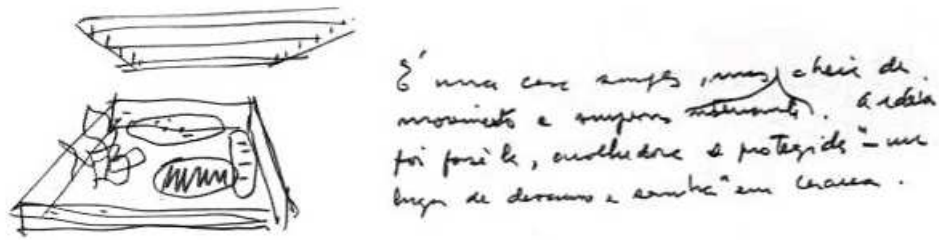 É uma casa simples, mas cheia de
movimento e surpresas interessante. A ideia
foi fazê-la, acolhedora e protegida "– um
lugar de descanso e sombra" em